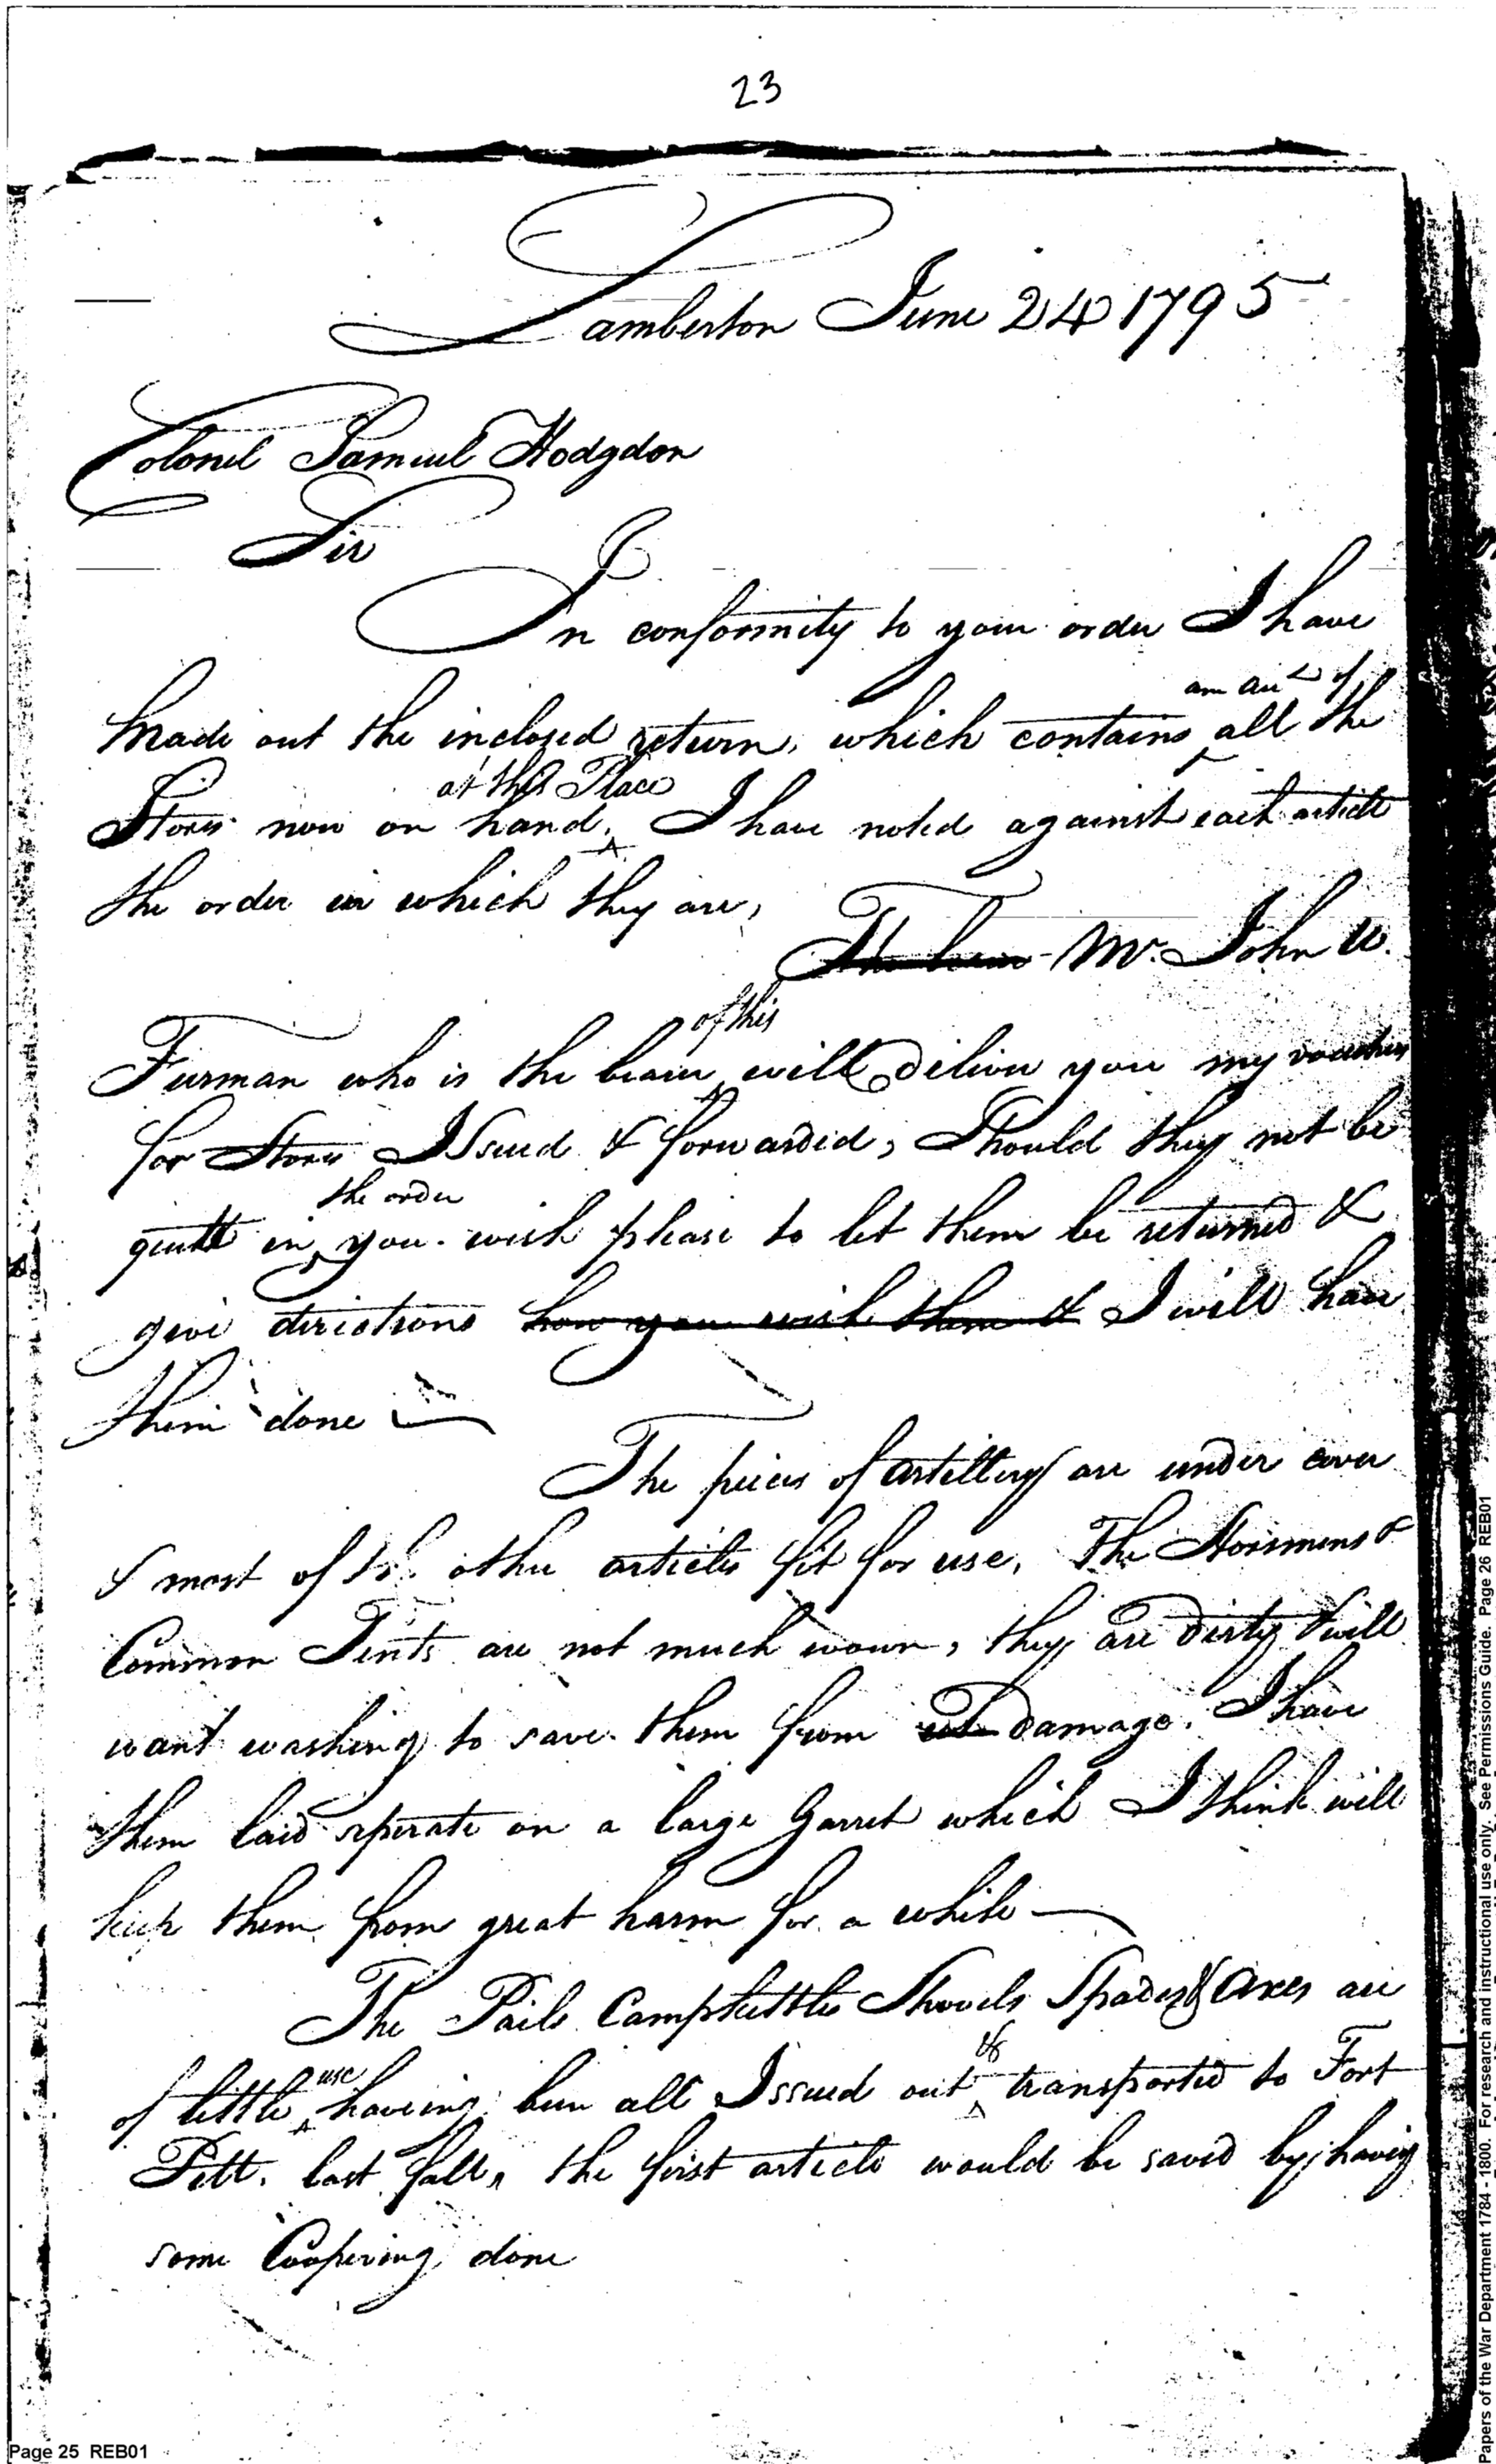 23
Lamberton June 24 1795
Colonel Samuel Hodgdon
Sir
In conformity to your order I have
an acct of
made out the inclosed return, which contains all the
at this Place
Stores now on hand, I have noted against each article
the order in which they are,
Mr. John W.
of this
Furman who is the bearer will deliver you my vouchers
for Stores Issued & forwarded, Should they not be
the order
quite in you wish please to let them be returned &
give directions how you wish them & I will have
them done
The peices of artillery are under cover
& most of the other articles fit for use, The Horsmens &
Common Tents are not much worn, they are dirty & will
want washing to save them from damage. I have
them laid seperate on a large Garret which I think will
keep them from great harm for a while
The Pails Campkettles Shovels Spades & Axes are
use &
of little haveing been all Issued out transported to Fort
Pitt. last fall, the first article would be saved by having
some Coopering done
Page 25 REB01
Papers of the War Department 1784 - 1800. For research and instructional use only. See Permissions Guide. Page 26 REB01